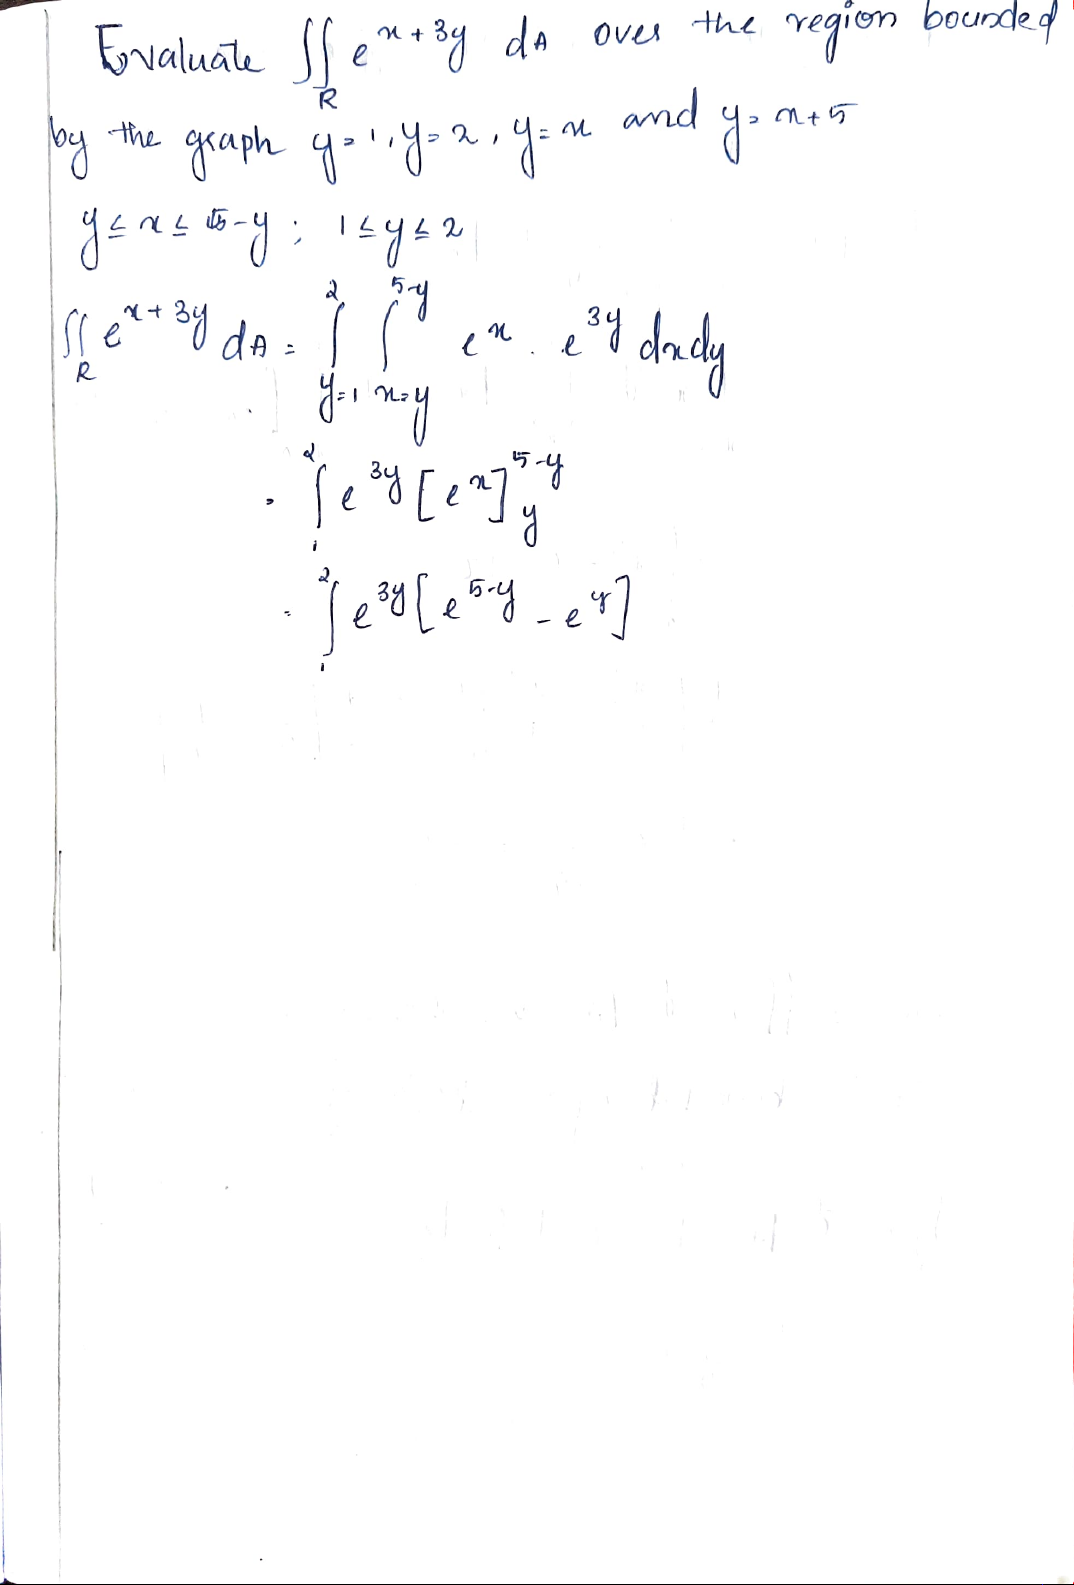 Evaluate ∬_R e^{x+3y} dA over the region bounded
by the graph y=1, y=2, y=x and y=x+5
y ≤ x ≤ 5-y ; 1 ≤ y ≤ 2
∬_R e^{x+3y} dA = ∫_{y=1}^{2} ∫_{x=y}^{5-y} e^x . e^{3y} dxdy
= ∫_1^2 e^{3y} [e^x]_y^{5-y}
= ∫_1^2 e^{3y} [e^{5-y} - e^y]